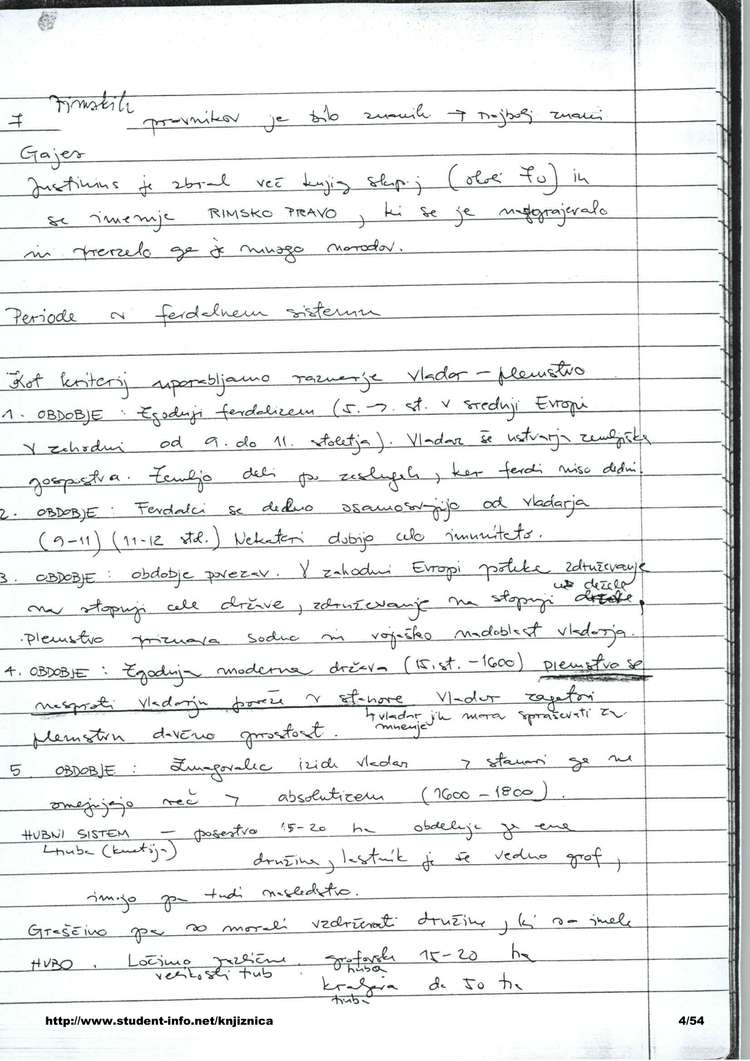 7 rimskih pravnikov je bilo znanih → najbolj znani
Gajes
Justinius je zbral več knjig skupaj (okoli 70) in
se imenuje RIMSKO PRAVO, ki se je nadgrajevalo
in prevzelo ga je mnogo narodov.
Periode v ferdalnem sistemu
Kot kriterij uporabljamo razmerje vladar – plemstvo
1. OBDOBJE : Zgodnji ferdalizem (5. → . st. v srednji Evropi
V zahodni od 9. do 11. stoletja). Vladar še ustvarja zemljiška
gospostva. Zemljo deli po zaslugah, ker ferdi niso dedni.
2. OBDOBJE : Ferdalci se dedno osamosvojijo od vladarja
(9-11) (11-12 stol.) Nekateri dobijo celo imuniteto.
3. OBDOBJE : obdobje povezav. V zahodni Evropi poteka združevanje
na stopnji cele države, združevanje na stopnji dežele,
plemstvo priznava sodno in vojaško nadoblast vladarja.
4. OBDOBJE : Zgodnja moderna država (15. st. – 1600) plemstvo se
nasproti vladarju poveže v stanove Vladar zagotovi
↳ vladar jih mora spraševati za mnenje
plemstvu davčno prostost.
5 OBDOBJE : Zmagovalec izide vladar → stanovi ga ne
omejujejo več → absolutizem (1600 – 1800).
HUBNI SISTEM – posestvo 15-20 ha obdeluje ga ena
↳ huba (kmetija)
družina, lastnik je še vedno grof,
imajo pa tudi nasledstvo.
Graščino pa so morali vzdrževati družine, ki so imele
HUBO. Ločimo različne velikosti hub. grofovska huba 15-20 ha
kraljeva huba do 50 ha
http://www.student-info.net/knjiznica 4/54